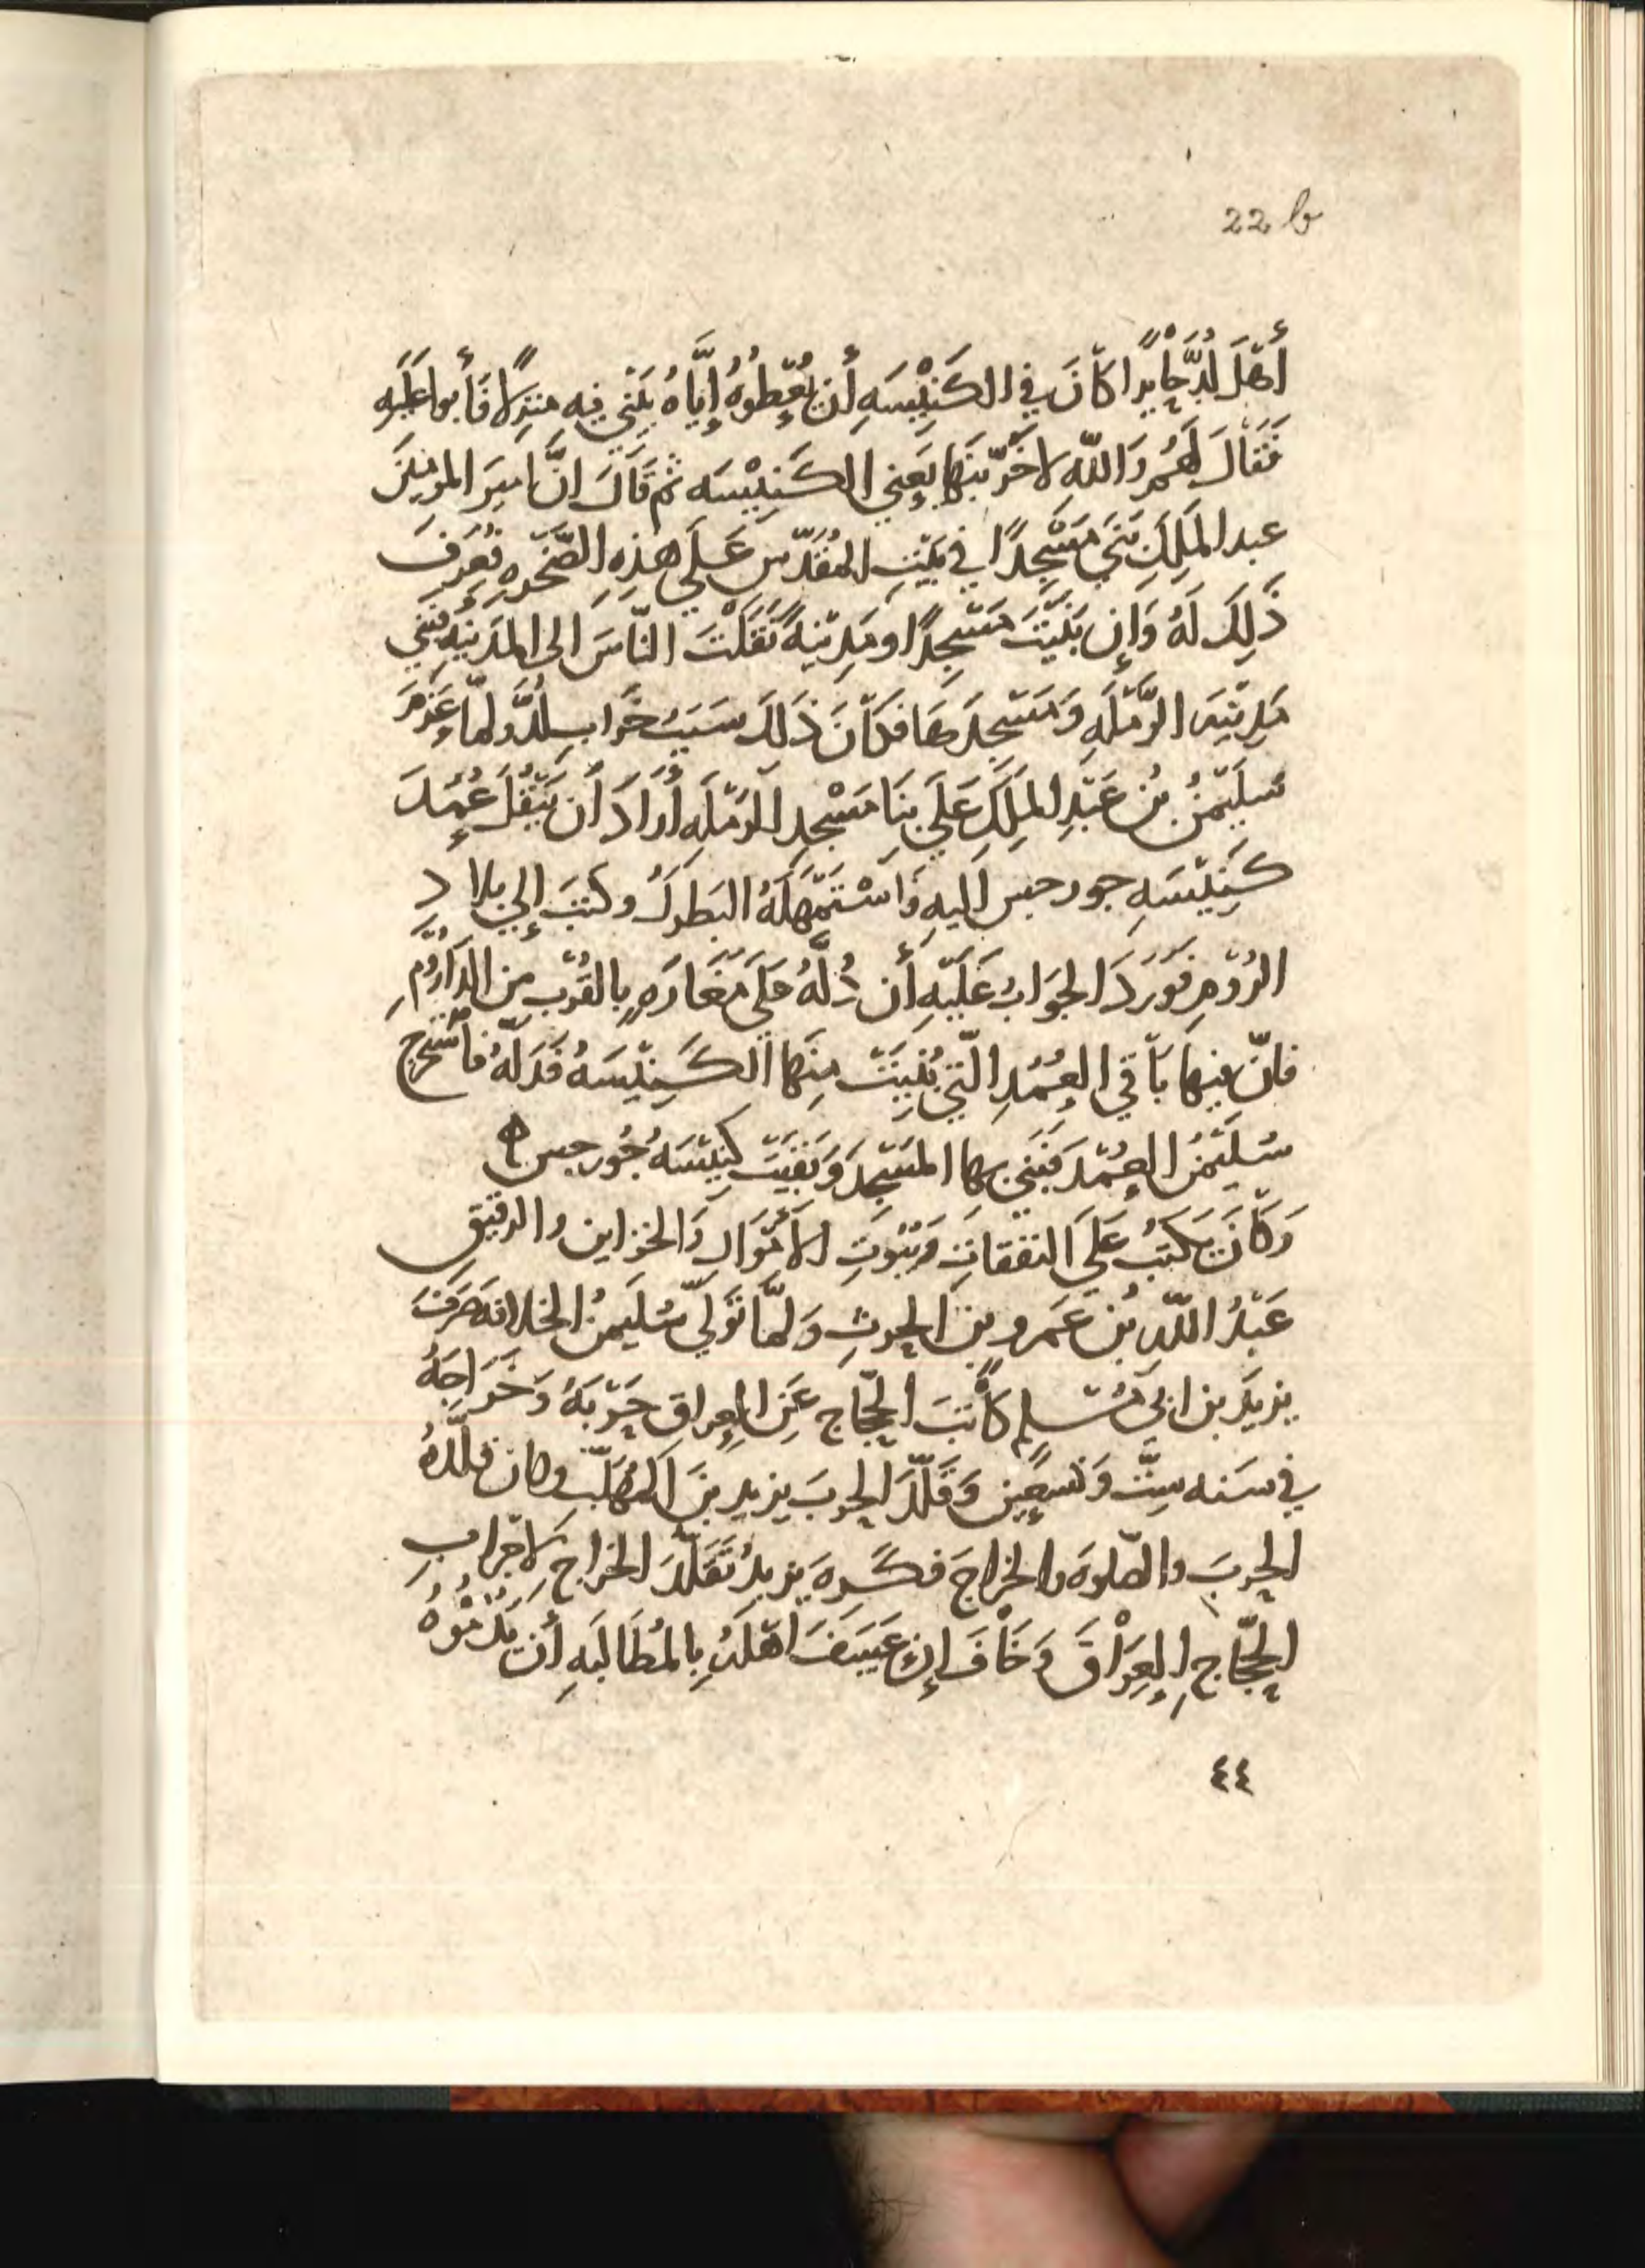 22 b
أَهْلَ لُدَّ جَايزًا كَانَ فِي الكَنِيْسَهِ أَن يُعْطُوهُ إِيَّاهُ يَبْنِي فِيهِ مَنزِلًا فَأَبوا عَلَيهِ
فَقَالَ لَهُمْ وَاللّهِ لاخَرِّبَنَّهَا يَعنِي الكَنِيْسَه ثم قَالَ انَّ امِيرَ المومِنِينَ
عبد المَلِكِ بَنَى مَسْجِدًا فِي بَيْتِ المقَدَّسِ عَلَى هذِهِ الصَّخْرَهِ فعُرِفَ
ذَلِكَ لَهُ وَإِن بَنَيْتَ مَسْجِدًا و مَدِيْنهً نَقَلْتَ النّاسَ الى المَدِينهِ فَبَنَى
مَدِيْنَه الرَّمْلَهِ وَمَسْجِدَهَا فكَانَ ذَلِكَ سَبَبُ خَرَابِ لُدَّ ولمّا عَزَمَ
سُلَيْمٰنُ بُن عَبْدِ المَلِكِ عَلَى بِنَا مَسْجِدِ الرَّمْلَهِ أَرَادَ أَن يَنْقُلَ عُمُدَ
كَنِيْسَهِ جورجيس اليهِ وَاسْتَمْهَلَهُ البَطرك وكتبَ إلى بلاد
الرُوْمِ فَوَرَدَ الجَوَابُ عَلَيْهِ أَن دُلَّهُ عَلَى مَغَارَهٍ بِالقُرْبِ مِن الدَّارُوْمِ
فانّ فيها بَاقي العُمُدِ الّتي بُنِيَتْ مِنهَا الكَنِيْسَهُ فَدَلّهُ فاسْتَخرج
سُلَيْمٰنُ العُمُدَ فَبَنى بِهَا المَسْجِدَ وَبَقِيَتْ كَنِيْسَهُ جُورجيس ه
وَكَانَ يَكتُبُ عَلَى النفقاتِ وَبُيُوتِ الأَمْوَالِ وَالخزاين والرقيق
عَبْدُ اللّهِ بُن عَمرو بنِ الحرثِ وَلمَّا تَوَلّى سُلَيمٰنُ الخلافَه صَرَفَ
يزيدَ بن ابى مُسْلمٍ كَاتِبَ الحجّاجِ عَنِ العِراقِ حَرْبَهُ وَخَرَاجَهُ
فى سَنه سِتٍّ وَتسعِين وَقَلّدَ الحربَ يزيد بنَ المُهَلّبِ وكان قلّدَهُ
الحربَ والصّلوهَ والخراجَ فكَرِهَ يزيدُ تَقَلُّدَ الخراجِ لاخرابِ
الحجّاجِ العِرَاقَ وَخَافَ إِن عَسَفَ اهْلَهُ بِالمُطَالَبَهِ أَن يَذُمُّوْهُ
٤٤